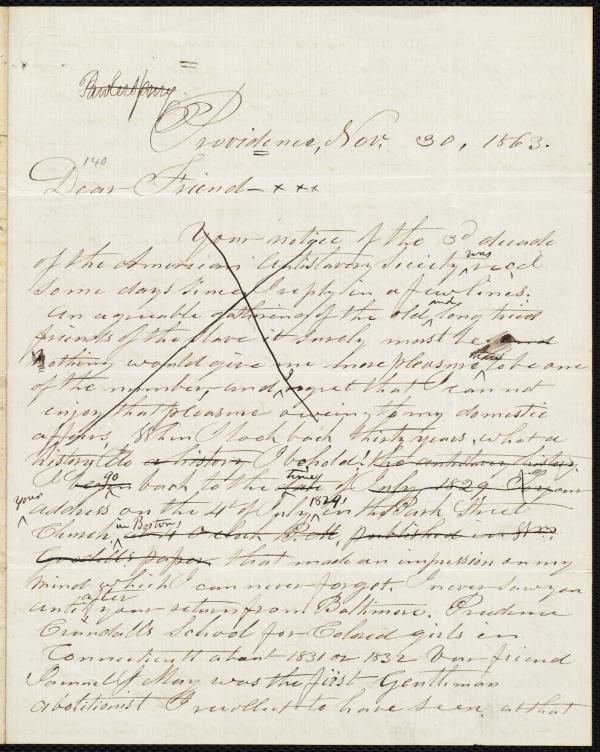 Providence, Nov. 30, 1863.
140
Dear Friend — x x x
Your notice of the 3d decade
of the American Antislavery Society was rec'd
some days since I reply in a few lines.
An agreeable gathering of the old, and long tried
friends of the slave it surely must be and
nothing would give me more pleasure than to be one
of the number, and regret that I can not
enjoy that pleasure oweing to my domestic
affairs, When I look back thirty years, what a
history do a history I behold! the antislavery history.
I began go back to the date time of July 1829 to your
your address on the 4th of July, 1829, in the Park Street
Church, in Boston, at 4 o'clock P.M, published in Wm.
Goodell's paper that made an impression on my
mind which I can never forget. I never saw you
until after your return from Baltimore. Prudence
Crandall's School for Colored girls in
Connecticutt about 1831 or 1832 Our friend
Samuel J May was the first Gentleman
abolitionist I recollect to have seen, at that